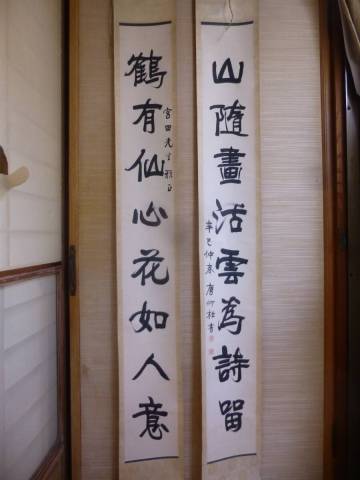 山隨畫活雲為詩留
辛巳仲春 唐仰杜書
鶴有仙心花如人意
宮田先生雅正